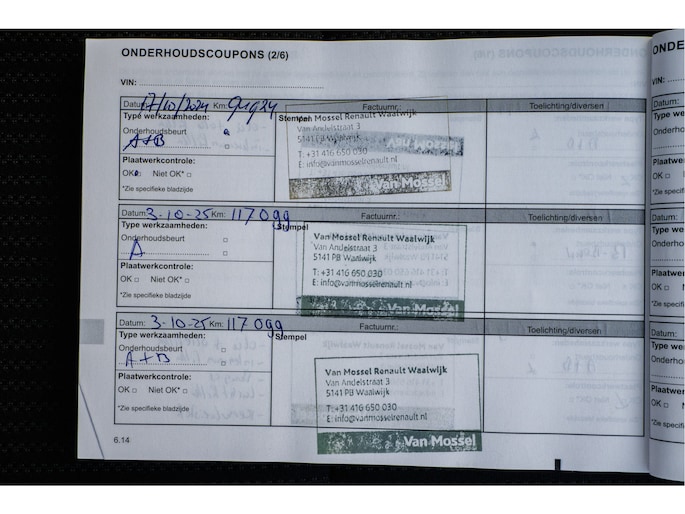 ONDERHOUDSCOUPONS (2/6)
VIN:
Datum: 17/10/2024 Km: Factuurnr.: Toelichting/diversen
Type werkzaamheden: Stempel
Onderhoudsbeurt
A+B
Plaatwerkcontrole:
OK Niet OK*
*Zie specifieke bladzijde
Van Mossel Renault Waalwijk
Van Andelstraat 3
5141 PB Waalwijk
T: +31 416 650 030
E: info@vanmosselrenault.nl
Van Mossel
Datum: 3-10-25 Km: 117099 Factuurnr.: Toelichting/diversen
Type werkzaamheden: Stempel
Onderhoudsbeurt
A
Plaatwerkcontrole:
OK Niet OK*
*Zie specifieke bladzijde
Van Mossel Renault Waalwijk
Van Andelstraat 3
5141 PB Waalwijk
T: +31 416 650 030
E: info@vanmosselrenault.nl
Van Mossel
Datum: 3-10-25 Km: 117099 Factuurnr.: Toelichting/diversen
Type werkzaamheden: Stempel
Onderhoudsbeurt
A+B
Plaatwerkcontrole:
OK Niet OK*
*Zie specifieke bladzijde
Van Mossel Renault Waalwijk
Van Andelstraat 3
5141 PB Waalwijk
T: +31 416 650 030
E: info@vanmosselrenault.nl
Van Mossel
6.14